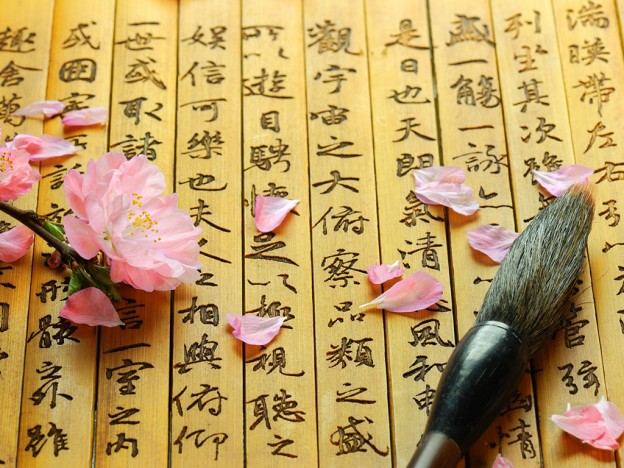 湍暎帶左右
列坐其次雖管弦
盛一觴一詠亦幽情
是日也天朗氣清風和
觀宇宙之大俯察品類之盛
所以遊目騁懷足以極視聽之
娛信可樂也夫人之相與俯仰
一世或取諸言一室之内
或因寄形骸之外雖
趣舍萬